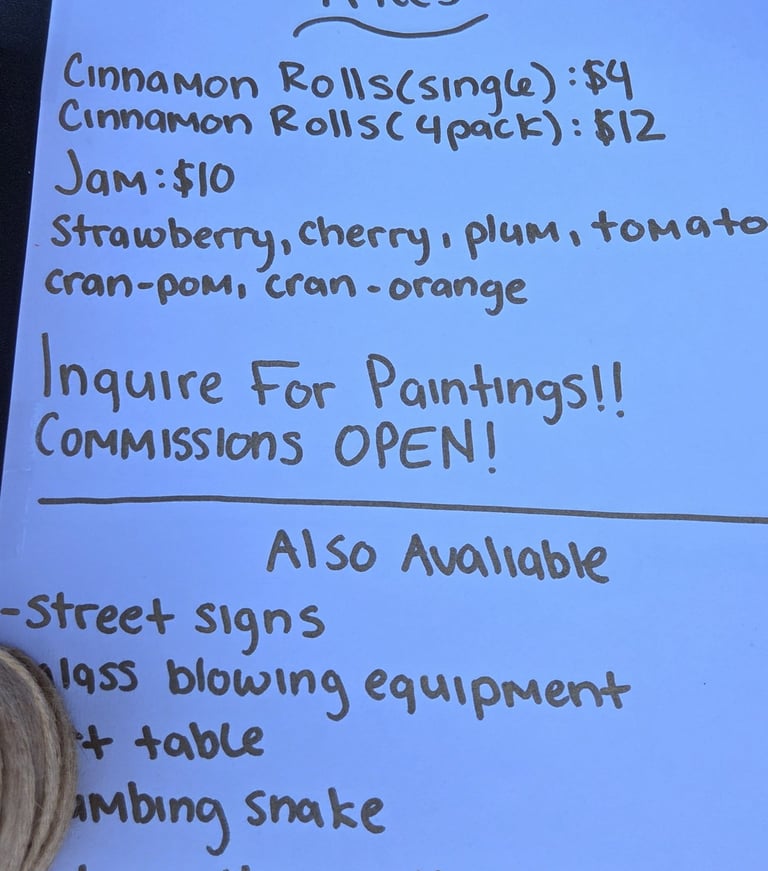 Cinnamon Rolls(single):$4
Cinnamon Rolls(4pack):$12
Jam:$10
Strawberry, cherry, plum, tomato
cran-pom, cran-orange
Inquire For Paintings!!
Commissions OPEN!
Also Avaliable
-Street signs
blowing equipment
table
snake